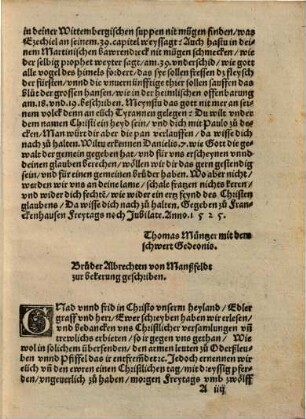 in deiner Wittembergischen suppen nit mügen finden/ was
Ezechiel an seinem .39. capitel weyssagt: Auch hastu in dei
nem Martinischen bawrendreck nit mügen schmecken/ wie
der selbig prophet weyter sagt/ am .39. vnderschid/ wie gott
alle vogel des himels fordert/ das sye sollen fressen dz fleysch
der fürsten/ vnnd die vnuernünfftige thier sollen sauffen das
blůt der grossen hansen/ wie in der heimlichen offenbarung
am .18. vnd .19. beschriben. Meynstu das gott nit mer an sei
nem volck denn an euch Tyrannen gelegen: Du wilt vnder
dem namen Christi ein heyd sein/ vnd dich mit Paulo zů de
cken/ Man würt dir aber die pan verlauffen/ da wisse dich
nach zů halten. Wiltu erkennen Danielis .7. wie Gott die ge
walt der gemein gegeben hat/ vnd für vns erscheynen vnnd
deinen glauben berechen/ wöllen wir dir das gern gesteen/
vnd für einen gemeinen brůder haben. Wo aber nicht/ so
werden wir vns an deine lame/ schale fratzen nichts keren/
vnd wider dich fechte/ wie wider ein ertz feynd des Christen
glaubens/ Da wisse dich nach zů halten. Gegeben zů Fran
ckenhausen Freytags noch Jubilate. Anno. 1 5 2 5.
Thomas Müntzer mit dem
schwert Gedeonis.
Brůder Albrechten von Manßfeldt
zur bekerung geschriben.
GNad vnnd frid in Christo vnserm heyland/ Edler
graff vnd herr/ Ewer schreyben haben wir erlesen/
vnd bedancken vns Christlicher versamlungen vn
trewlichs erbieten/ so ir gegen vns gethan/ Wie
wol in solichem übersenden/ den armen leuten zů Oderßleu
ben vnnd Pfiffel das ir entfrendet ꝛc. Jedoch ernennen wir
eylich den ewren einen Christlichen tag/ mit dreyssig pfer
den/ vngeuerlich zů haben/ morgen Freytags vmb zwölff
A iiij